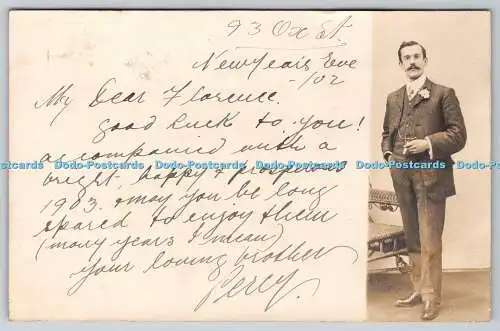 93 Ox St.
New Years Eve
-/02
My Dear Florence.
Good luck to you!
accompanied with a
bright, happy & prosperous
1903. & may you be long
spared to enjoy them
(many years I mean)
your loving brother
Percy.
Dodo Postcards Dodo Postcards Dodo Postcards Dodo Postcards